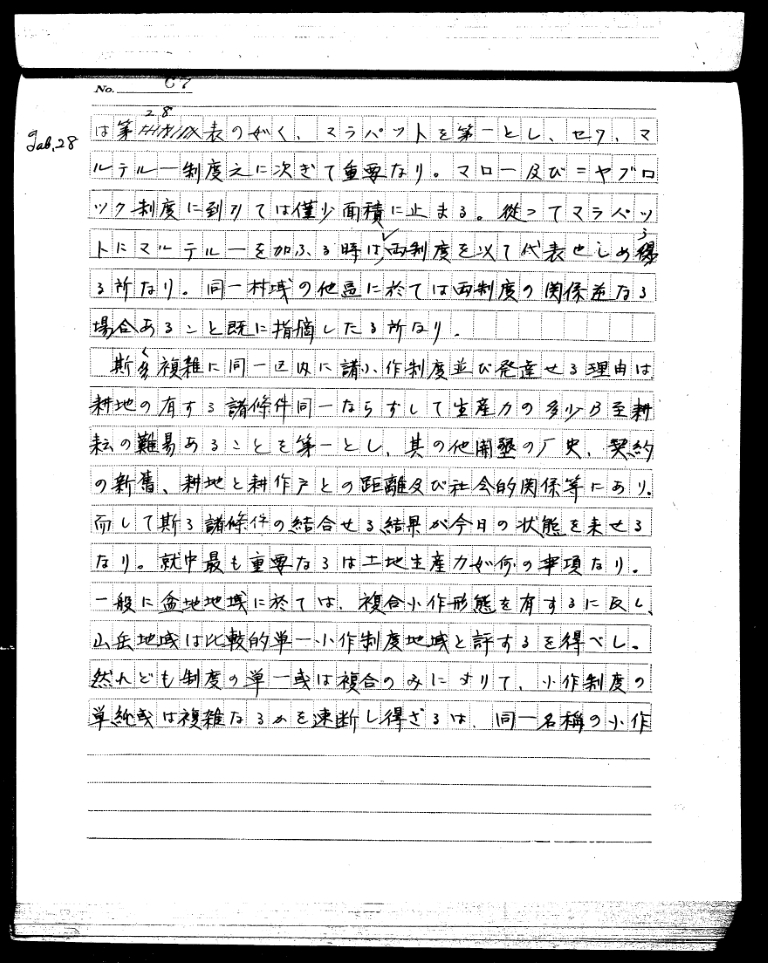 No. 67
Tab. 28
は第28表の如く、マラパットを第一とし、セワ、マ
ルテルー制度之に次ぎて重要なり。マロー及びニヤブロ
ック制度に到りては僅少面積に止まる。従ってマラペッ
トにマルテルーを加ふる時は両制度を以て代表せしめ得
る所なり。同一村域の他邑に於ては両制度の関係逆なる
場合あること既に指摘したる所なり。
斯く複雑に同一区内に諸小作制度並び発達せる理由は
耕地の有する諸條件同一ならずして生産力の多少乃至耕
耘の難易あることを第一とし、其の他開墾の歴史、契約
の新舊、耕地と耕作戸との距離及び社会的関係等にあり。
而して斯る諸條件の結合せる結果が今日の状態を来せる
なり。就中最も重要なるは土地生産力如何の事項なり。
一般に盆地地域に於ては、複合小作形態を有するに反し、
山岳地域は比較的単一小作制度地域と評するを得べし。
然れども制度の単一或は複合のみによりて、小作制度の
単純或は複雑なるかを速断し得ざるは、同一名稱の小作